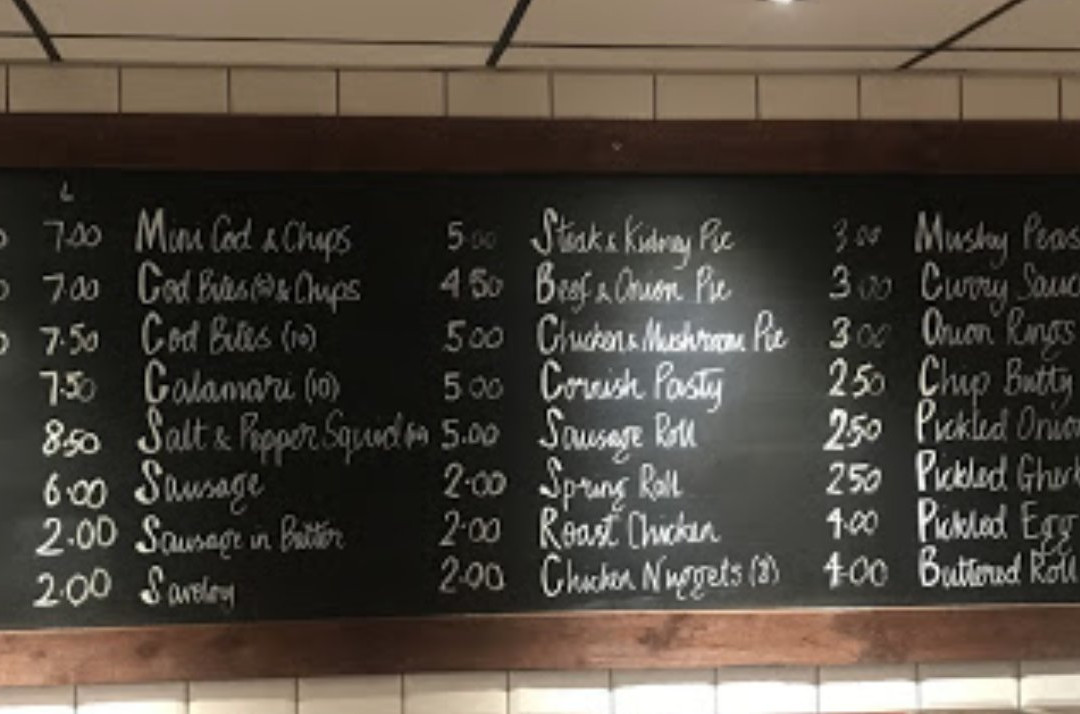 L
7.00 Mini Cod & Chips 5.00 Steak & Kidney Pie 3.00 Mushy Peas
7.00 Cod Bites & Chips 4.50 Beef & Onion Pie 3.00 Curry Sauc
7.50 Cod Bites (10) 5.00 Chicken & Mushroom Pie 3.00 Onion Rings
7.50 Calamari (10) 5.00 Cornish Pasty 2.50 Chip Butty
8.50 Salt & Pepper Squid 5.00 Sausage Roll 2.50 Pickled Onion
6.00 Sausage 2.00 Spring Roll 2.50 Pickled Gherk
2.00 Sausage in Batter 2.00 Roast Chicken 4.00 Pickled Egg
2.00 Saveloy 2.00 Chicken Nuggets (8) 4.00 Buttered Roll